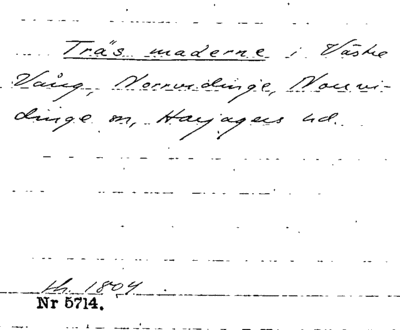 Träs maderne i Västra
Vång, Norrvidinge, Norrvi-
dinge sn, Harjagers hd.
th. 1804
Nr 5714.